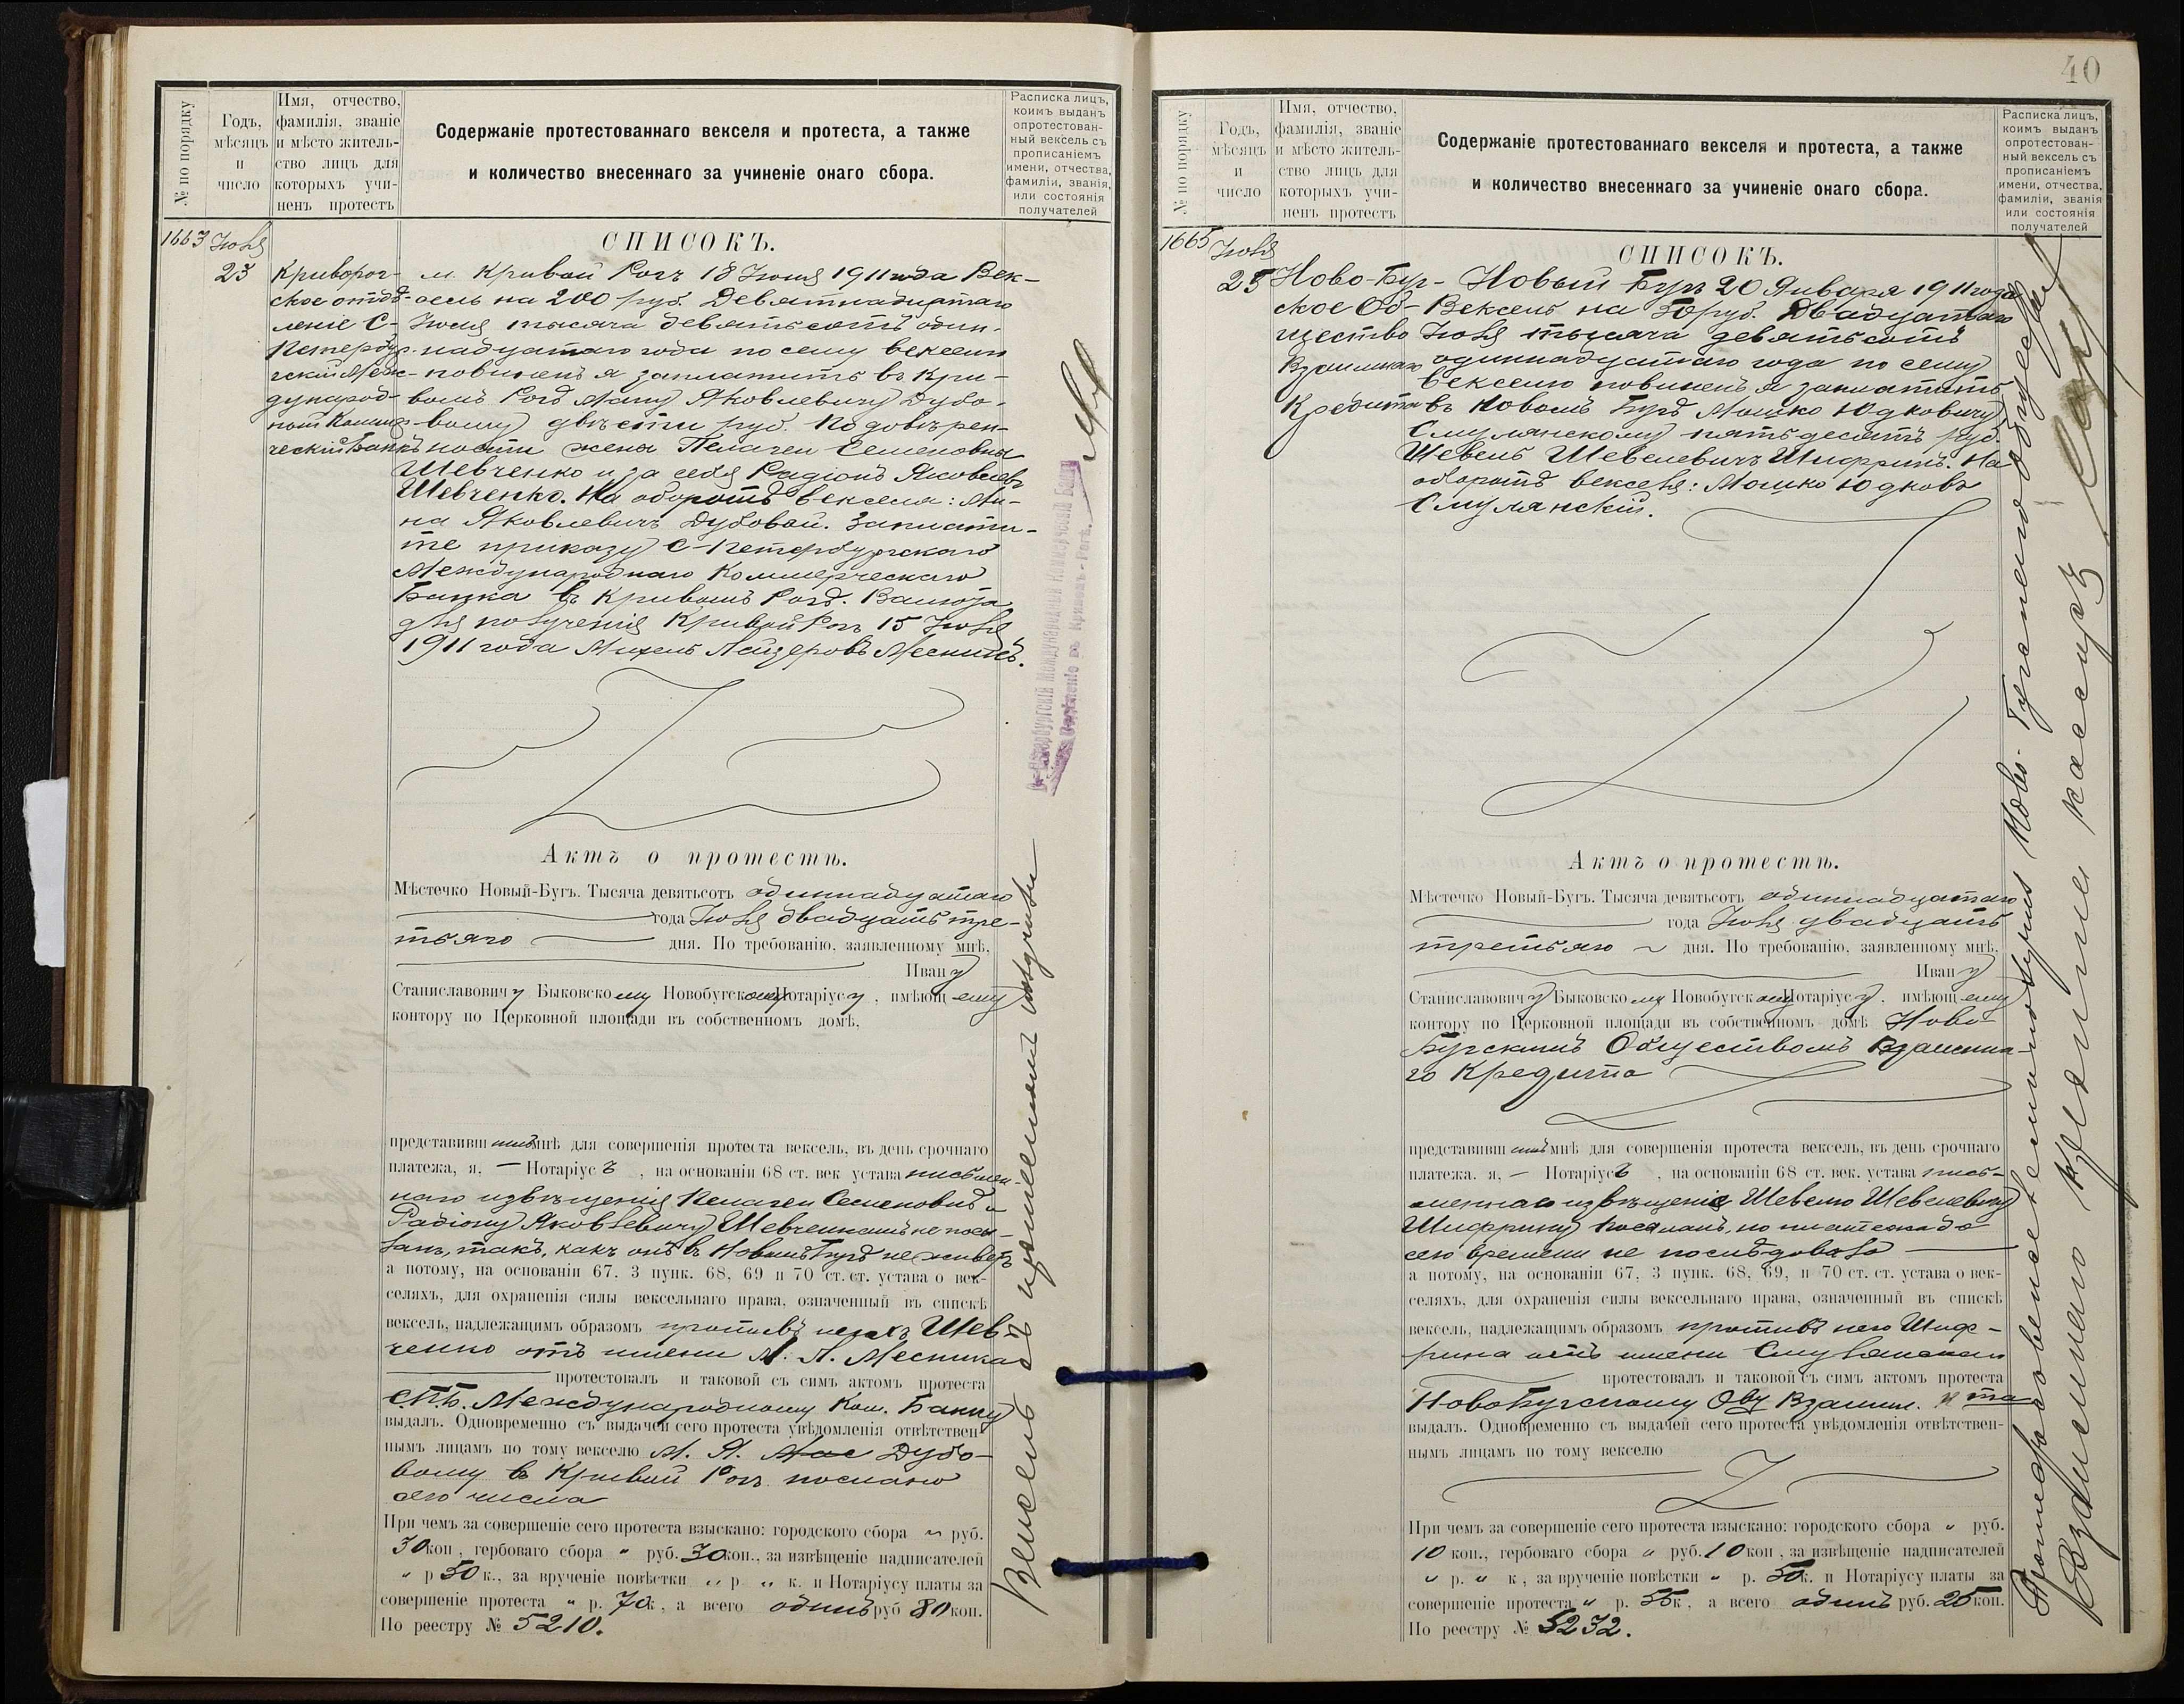 № по порядку
Годъ, мѣсяцъ и число
Имя, отчество, фамилія, званіе и мѣсто жительство лицъ для которыхъ учиненъ протестъ
Содержаніе протестованнаго векселя и протеста, а также
и количество внесеннаго за учиненіе онаго сбора.
Расписка лицъ, коимъ выданъ опротестованный вексель съ прописаніемъ имени, отчества, фамиліи, званія, или состоянія получателей
1663
Іюля
23
Криворог-
ское отдѣ-
леніе С-
Петербур-
гскій Меж-
дународ-
ный Коммер-
ческій Банкъ
СПИСОКЪ.
м. Кривой Рогъ 18 Іюня 1911 года Век-
сель на 200 руб. Девятнадцатаго
Іюля тысяча девятьсотъ один-
надцатаго года по сему векселю
повиненъ я заплатить въ Кри-
вомъ Рогѣ Яковлевичу Дубо-
вому двѣсти руб. По довѣрен-
ности жена Пелагеи Семеновны
Шевченко и за себя Радіонъ Яковлевъ
Шевченко. На оборотѣ векселя:
Яковлевичъ Дубовой. Заплати-
те приказу С-Петербургскаго
Международнаго Коммерческаго
Банка въ Кривомъ Рогѣ. Валюта
для полученія Кривой Рогъ 15 Іюля
1911 года Лейзеровъ Месникъ.
С-Петербургскій Международный Коммерческій Банкъ
Отдѣленіе въ Кривомъ-Рогѣ.
Актъ о протестѣ.
Мѣстечко Новый-Бугъ. Тысяча девятьсотъ одиннадцатаго
года Іюля двадцать тре-
тьяго дня. По требованію, заявленному мнѣ,
Ивану
Станиславовичу Быковскому Новобугскому Нотаріусу, имѣющему
контору по Церковной площади въ собственномъ домѣ,
представившимъ мнѣ для совершенія протеста вексель, въ день срочнаго
платежа, я. — Нотаріусъ, на основаніи 68 ст. век устава письмен-
наго извѣщенія Пелагеи Семеновнѣ и
Радіону Яковлевичу Шевченкамъ не посы-
лалъ, такъ, какъ онѣ въ Новомъ Бугѣ не живетъ
а потому, на основаніи 67. 3 пунк. 68, 69 и 70 ст. ст. устава о век-
селяхъ, для охраненія силы вексельнаго права, означенный въ спискѣ
вексель, надлежащимъ образомъ противъ нихъ Шев-
ченко отъ имени М. Л. Месника
протестовалъ и таковой съ симъ актомъ протеста
С.П.Б. Международному Ком. Банку
выдалъ. Одновременно съ выдачей сего протеста увѣдомленія отвѣтствен
нымъ лицамъ по тому векселю М. Я. Дубо-
вому въ Кривой Рогъ послано
сего числа
При чемъ за совершеніе сего протеста взыскано: городского сбора „ руб.
30 коп., гербоваго сбора „ руб. 30 коп., за извѣщеніе надписателей
„ р 50 к., за врученіе повѣстки „ р „ к. и Нотаріусу платы за
совершеніе протеста „ р. 70 к, а всего одинъ руб 80 коп.
По реестру № 5210.
Вексель съ протестомъ получилъ
40
№ по порядку
Годъ, мѣсяцъ и число
Имя, отчество, фамилія, званіе и мѣсто жительство лицъ для которыхъ учиненъ протестъ
Содержаніе протестованнаго векселя и протеста, а также
и количество внесеннаго за учиненіе онаго сбора.
Расписка лицъ, коимъ выданъ опротестованный вексель съ прописаніемъ имени, отчества, фамиліи, званія или состоянія получателей
1665
Іюля
23
Ново-Буг-
ское Об-
щество
Взаимнаго
Кредита
СПИСОКЪ.
Новый Бугъ 20 Января 1911 года
Вексель на 50 руб. Двадцатаго
Іюля тысяча девятьсотъ
одиннадцатаго года по сему
векселю повиненъ я заплатить
въ Новомъ Бугѣ Мошко Юдковичу
Смулянскому пятьдесятъ руб.
Шевель Шевелевичъ Шифринъ. На
оборотѣ векселя: Мошко Юдковъ
Смулянскій.
Актъ о протестѣ.
Мѣстечко Новый-Бугъ. Тысяча девятьсотъ одиннадцатаго
года Іюля двадцать
третьяго дня. По требованію, заявленному мнѣ,
Ивану
Станиславовичу Быковскому Новобугскому Нотаріусу, имѣющему
контору по Церковной площади въ собственномъ домѣ Ново-
Бугскимъ Обществомъ Взаимна-
го Кредита
представившимъ мнѣ для совершенія протеста вексель, въ день срочнаго
платежа. я, — Нотаріусъ, на основаніи 68 ст. век. устава пись-
менная извѣщеніе Шевелю Шевелевичу
Шифрину посланъ, но платежа до
сего времени не послѣдовало
а потому, на основаніи 67, 3 пунк. 68, 69, и 70 ст. ст. устава о век-
селяхъ, для охраненія силы вексельнаго права, означенный въ спискѣ
вексель, надлежащимъ образомъ противъ него Шиф-
рина отъ имени Смулянскаго
протестовалъ и таковой съ симъ актомъ протеста
НовоБугскому Обу Взаимн.
выдалъ. Одновременно съ выдачей сего протеста увѣдомленія отвѣтствен-
нымъ лицамъ по тому векселю
При чемъ за совершеніе сего протеста взыскано: городского сбора „ руб.
10 коп., гербоваго сбора „ руб. 10 коп, за извѣщеніе надписателей
„ р. „ к, за врученіе повѣстки „ р. 50 к. и Нотаріусу платы за
совершеніе протеста „ р. 55 к, а всего одинъ руб. 25 коп.
По реестру № 5232.
Взаимнаго Кредита кассиръ